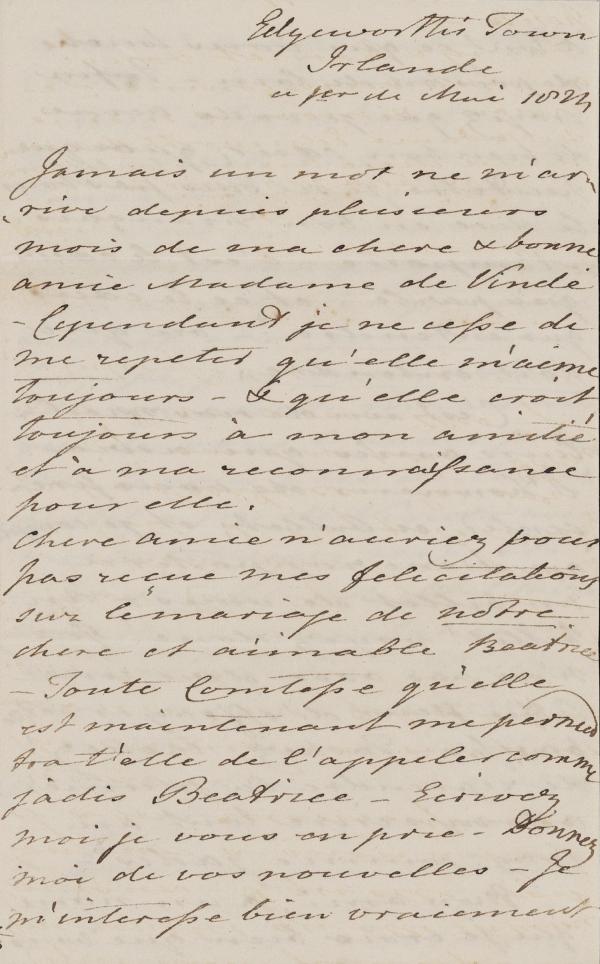 Edgeworth's Town
Irlande
a 1er de Mai 18
Jamais un mot ne m'ar-
rive depuis plusieurs
mois de ma chere & bonne
amie Madame de Vindé
- Cependant je ne cesse de
me repeter qu'elle m'aime
toujours - & qu'elle croit
toujours à mon amitié
et à ma reconnaissance
pour elle.
chere amie n'auriez vous
pas reçue mes felicitations
sur le mariage de notre
chere et aimable Beatrice
- Toute Comtesse qu'elle
est maintenant me permet
tra t'elle de l'appeler comme
jadis Beatrice - Ecrivez
moi je vous en prie - Donnez
moi de vos nouvelles - Je
m'interesse bien vraiement